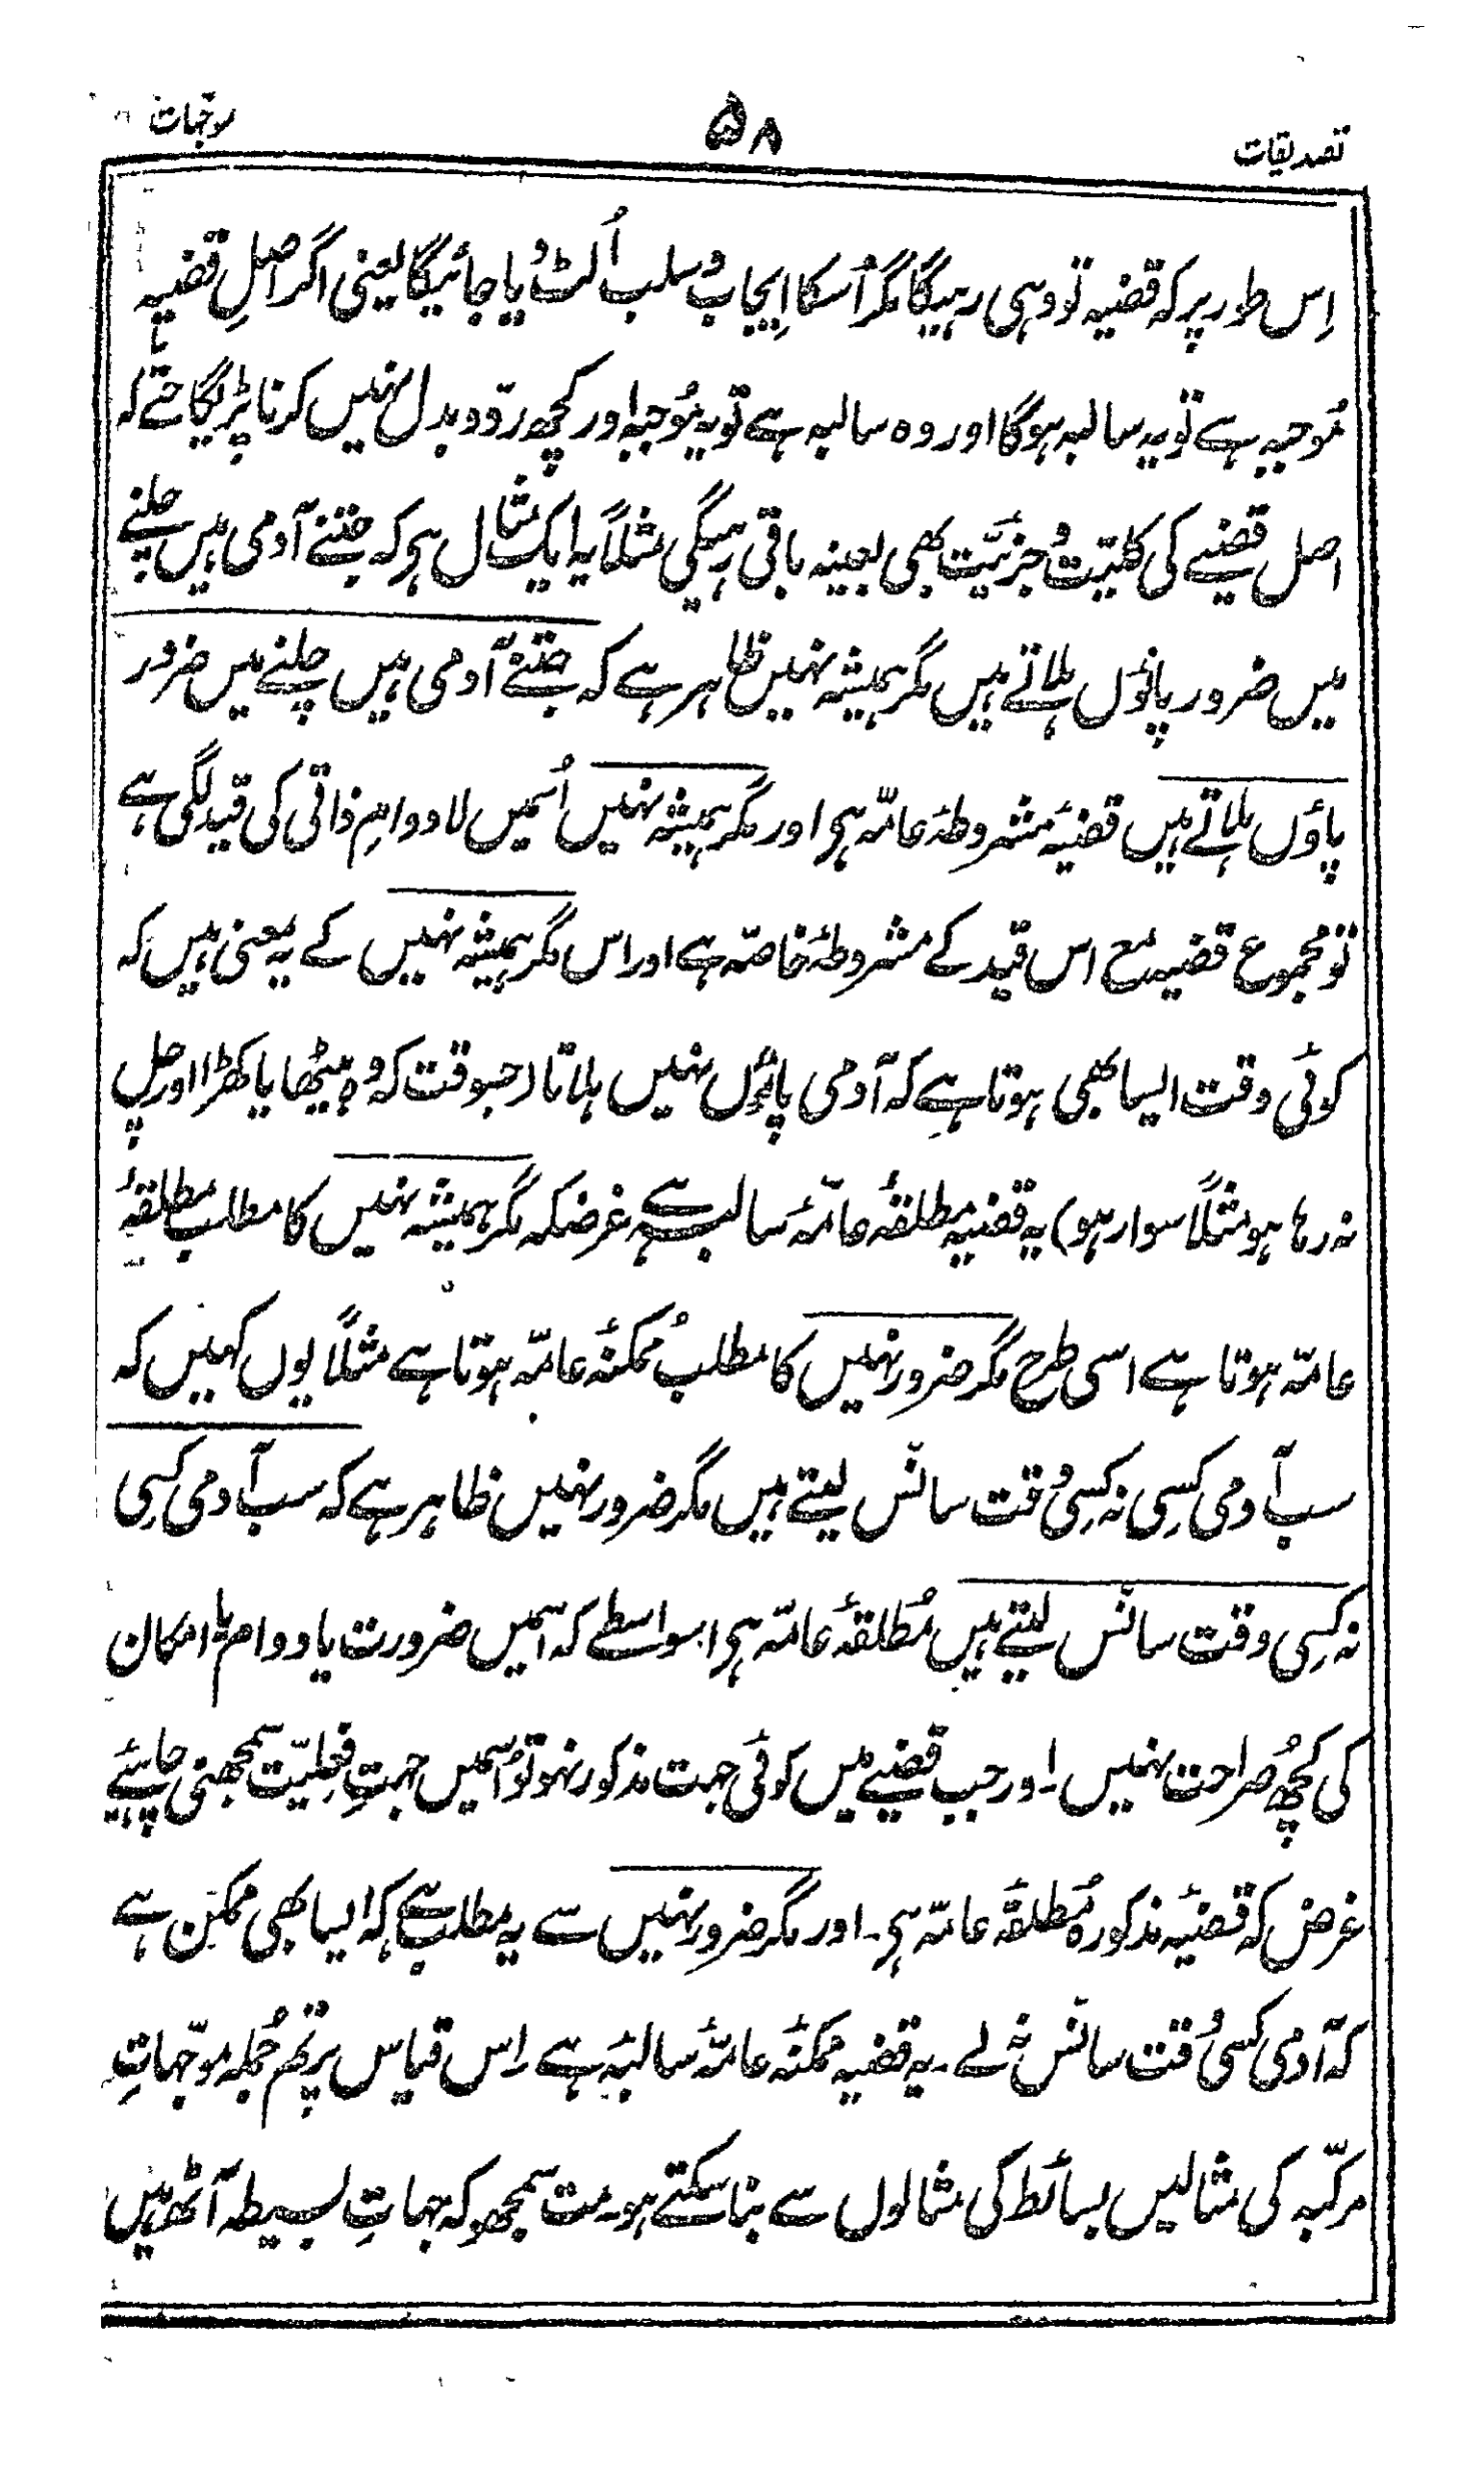 تصدیقات
۵۸
موجّہات
اِس طور پر کہ قضیہ تو وہی رہیگا مگر اُسکا اِیجاب و سلب اُلٹ دیا جائیگا یعنی اگر اصلِ قضیہ
مُوجبہ ہے تو یہ سالبہ ہوگا اور وہ سالبہ ہے تو یہ مُوجبہ اور کچھ ردّو بدل نہیں کرنا پڑیگا حتےٰ کہ
اصل قضیے کی کلیّت و جزئیّت بھی بعینہ باقی رہیگی مثلاً یہ ایک مثال ہی کہ جتنے آدمی ہیں چلنے
میں ضرور پانؤں ہلاتے ہیں مگر ہمیشہ نہیں ظاہر ہے کہ جتنے آدمی ہیں چلنے میں ضرور
پاؤں ہلاتے ہیں قضیۂ مشروطۂ عامّہ ہی اور مگر ہمیشہ نہیں اُسمیں لادوامِ ذاتی کی قید لگی ہے
تو مجموع قضیہ مع اس قید کے مشروطۂ خاصّہ ہے اور اس مگر ہمیشہ نہیں کے یہ معنی ہیں کہ
کوئی وقت ایسا بھی ہوتا ہے کہ آدمی پانؤں نہیں ہلاتا (جسوقت کہ وہ بیٹھا یا کھڑا اور چل
نہ رہا ہو مثلاً سوار ہو) یہ قضیہ مطلقۂ عامّۂ سالبہ ہے غرضکہ مگر ہمیشہ نہیں کا مطلب مطلقۂ
عامّہ ہوتا ہے اسی طرح مگر ضرور نہیں کا مطلب مُمکنۂ عامّہ ہوتا ہے مثلاً یوں کہیں کہ
سب آدمی کسی نہ کسی وقت سانس لیتے ہیں مگر ضرور نہیں ظاہر ہے کہ سب آدمی کسی
نہ کسی وقت سانس لیتے ہیں مُطلقۂ عامّہ ہی اسواسطے کہ اسمیں ضرورت یا دوام یا امکان
کی کچھ صُراحت نہیں۔ اور جب قضیے میں کوئی جہت مذکور نہو تو اُسمیں جہتِ فعلیّت سمجھنی چاہیئے
غرض کہ قضیۂ مذکورہ مُطلقۂ عامّہ ہی۔ اور مگر ضرور نہیں سے یہ مطلب ہے کہ ایسا بھی ممکن ہے
کہ آدمی کسی وقت سانس نہ لے۔ یہ قضیہ ممکنۂ عامّۂ سالبہ ہے اِس قیاس پر تم جُملہ موجّہاتِ
مرکّبہ کی مثالیں بسائط کی مثالوں سے بنا سکتے ہو۔ مت سمجھو کہ جہاتِ بسیطہ آٹھ ہیں